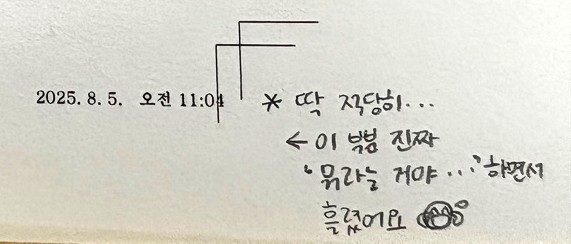 2025. 8. 5. 오전 11:04
* 딱 적당히...
← 이 부분 진짜
'뭐라는 거야...' 하면서
흘렸어요